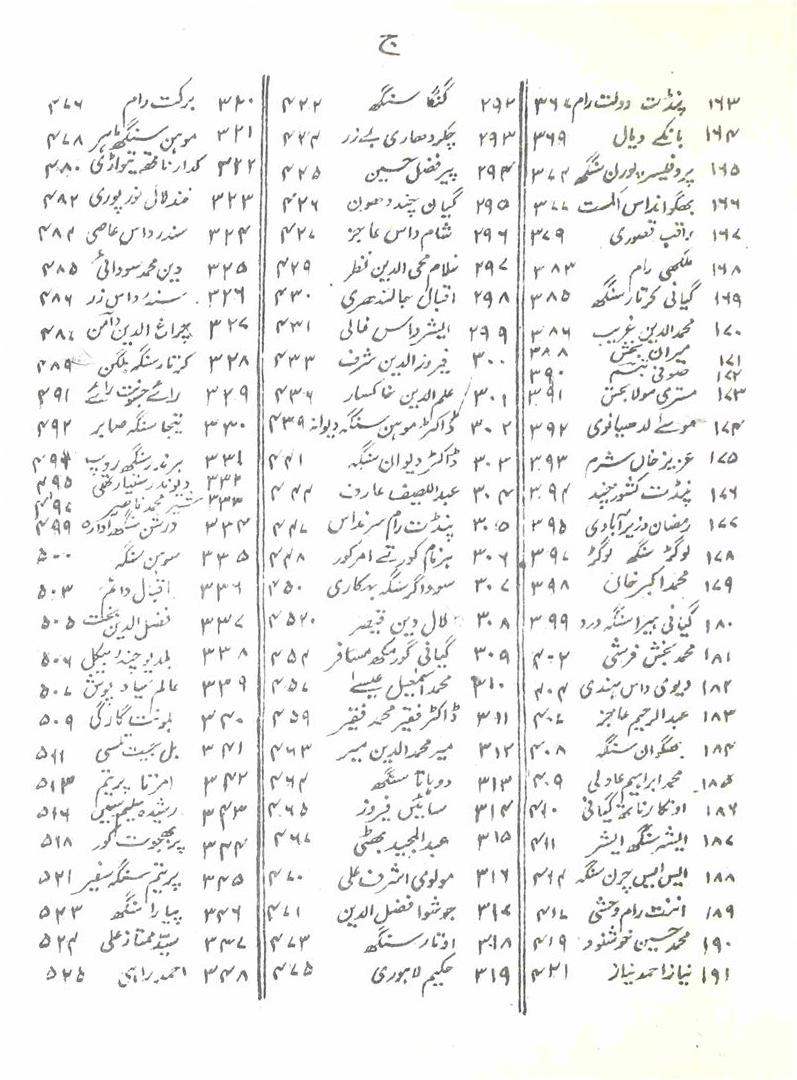 ج
۱۶۳ پنڈت دولت رام ۳۶۷
۱۶۴ بانکے دیال ۳۶۹
۱۶۵ پروفیسر پورن سنگھ ۳۷۴
۱۶۶ بھگوانداس الست ۳۷۷
۱۶۷ راقب قصوری ۳۷۹
۱۶۸ ملکھی رام ۳۸۳
۱۶۹ گیانی کرتار سنگھ ۳۸۵
۱۷۰ محمدالدین غریب ۳۸۶
۱۷۱ میراں بخش ۳۸۸
۱۷۲ صوفی تبسم ۳۹۰
۱۷۳ مستری مولا بخش ۳۹۱
۱۷۴ موسےٰ لدھیانوی ۳۹۲
۱۷۵ عزیز خاں شرم ۳۹۳
۱۷۶ پنڈت کشور چند ۳۹۴
۱۷۷ رمضان وزیرآبادی ۳۹۵
۱۷۸ نوگز سنگھ نوگز ۳۹۷
۱۷۹ محمد اکبر خاں ۳۹۸
۱۸۰ گیانی ہیرا سنگھ درد ۳۹۹
۱۸۱ محمد بخش قرشی ۴۰۲
۱۸۲ دیوی داس ہندی ۴۰۴
۱۸۳ عبدالرحیم عاجز ۴۰۷
۱۸۴ بھگوان سنگھ ۴۰۸
۱۸۵ محمد ابراہیم عادلی ۴۰۹
۱۸۶ اونکار ناتھ گیانی ۴۱۰
۱۸۷ ایشر سنگھ ایشر ۴۱۱
۱۸۸ ایس ایس چرن سنگھ ۴۱۴
۱۸۹ اننت رام وحشی ۴۱۷
۱۹۰ محمد حسین خوشنود ۴۱۹
۱۹۱ نیاز احمد نیاز ۴۲۱
۲۹۲ گنگا سنگھ ۴۲۲
۲۹۳ چکر دھاری بے زر ۴۲۴
۲۹۴ پیر فضل حسین ۴۲۵
۲۹۵ گیان چند دھون ۴۲۶
۲۹۶ شام داس عاجز ۴۲۷
۲۹۷ غلام محی الدین قطر ۴۲۹
۲۹۸ اقبال جالندھری ۴۳۰
۲۹۹ ایشر داس فانی ۴۳۱
۳۰۰ فیروزالدین شرف ۴۳۳
۳۰۱ علم الدین خاکسار ۴۳۶
۳۰۲ ڈاکٹر موہن سنگھ دیوانہ ۴۳۹
۳۰۳ ڈاکٹر دیوان سنگھ ۴۴۱
۳۰۴ عبداللطیف عارف ۴۴۴
۳۰۵ پنڈت رام سرنداس ۴۴۷
۳۰۶ ہرنام کور تے امر کور ۴۴۸
۳۰۷ سوداگر سنگھ بھکاری ۴۵۰
۳۰۸ لال دین قیصر ۴۵۲۰
۳۰۹ گیانی گورمکھ مسافر ۴۵۴
۳۱۰ محمد اسمٰعیل عیسےٰ ۴۵۷
۳۱۱ ڈاکٹر فقیر محمد فقیر ۴۵۹
۳۱۲ میر محمدالدین میر ۴۶۳
۳۱۳ دوباتا سنگھ ۴۶۴
۳۱۴ سائیں فیروز ۴۶۵
۳۱۵ عبدالمجید بھٹی ۴۶۷
۳۱۶ مولوی اشرف علی ۴۷۰
۳۱۷ جوشوا فضل الدین ۴۷۱
۳۱۸ اوتار سنگھ ۴۷۳
۳۱۹ حکیم لاہوری ۴۷۵
۳۲۰ برکت رام ۴۷۶
۳۲۱ موہن سنگھ ماہر ۴۷۸
۳۲۲ کدار ناتھ تیواڑی ۴۸۰
۳۲۳ نند لال نور پوری ۴۸۲
۳۲۴ سندر داس عاصی ۴۸۴
۳۲۵ دین محمد سودائی ۴۸۵
۳۲۶ سندر داس زر ۴۸۶
۳۲۷ چراغ الدین دامن ۴۸۷
۳۲۸ کرتار سنگھ بلگن ۴۸۹
۳۲۹ رائے جسونت رائے ۴۹۱
۳۳۰ تیجا سنگھ صابر ۴۹۲
۳۳۱ ہرند سنگھ روپ ۴۹۴
۳۳۲ دیوندر ستیارتھی ۴۹۵
۳۳۳ شیر محمد ناصر ۴۹۷
۳۳۴ درشن سنگھ آوارہ ۴۹۹
۳۳۵ سوہن سنگھ ۵۰۰
۳۳۶ اقبال دائم ۵۰۳
۳۳۷ فضل الدین بخت ۵۰۵
۳۳۸ بلدیو چند بیکل ۵۰۶
۳۳۹ عالم سیاہ پوش ۵۰۷
۳۴۰ بلونت گارگی ۵۰۹
۳۴۱ بل جیت تلسی ۵۱۱
۳۴۲ امرتا پریتم ۵۱۳
۳۴۳ رشیدہ سلیم سیمیں ۵۱۶
۳۴۴ پربھجوت کور ۵۱۸
۳۴۵ پریتم سنگھ سفیر ۵۲۱
۳۴۶ پیارا سنگھ ۵۲۳
۳۴۷ سید ممتاز علی ۵۲۴
۳۴۸ احمد راہی ۵۲۵